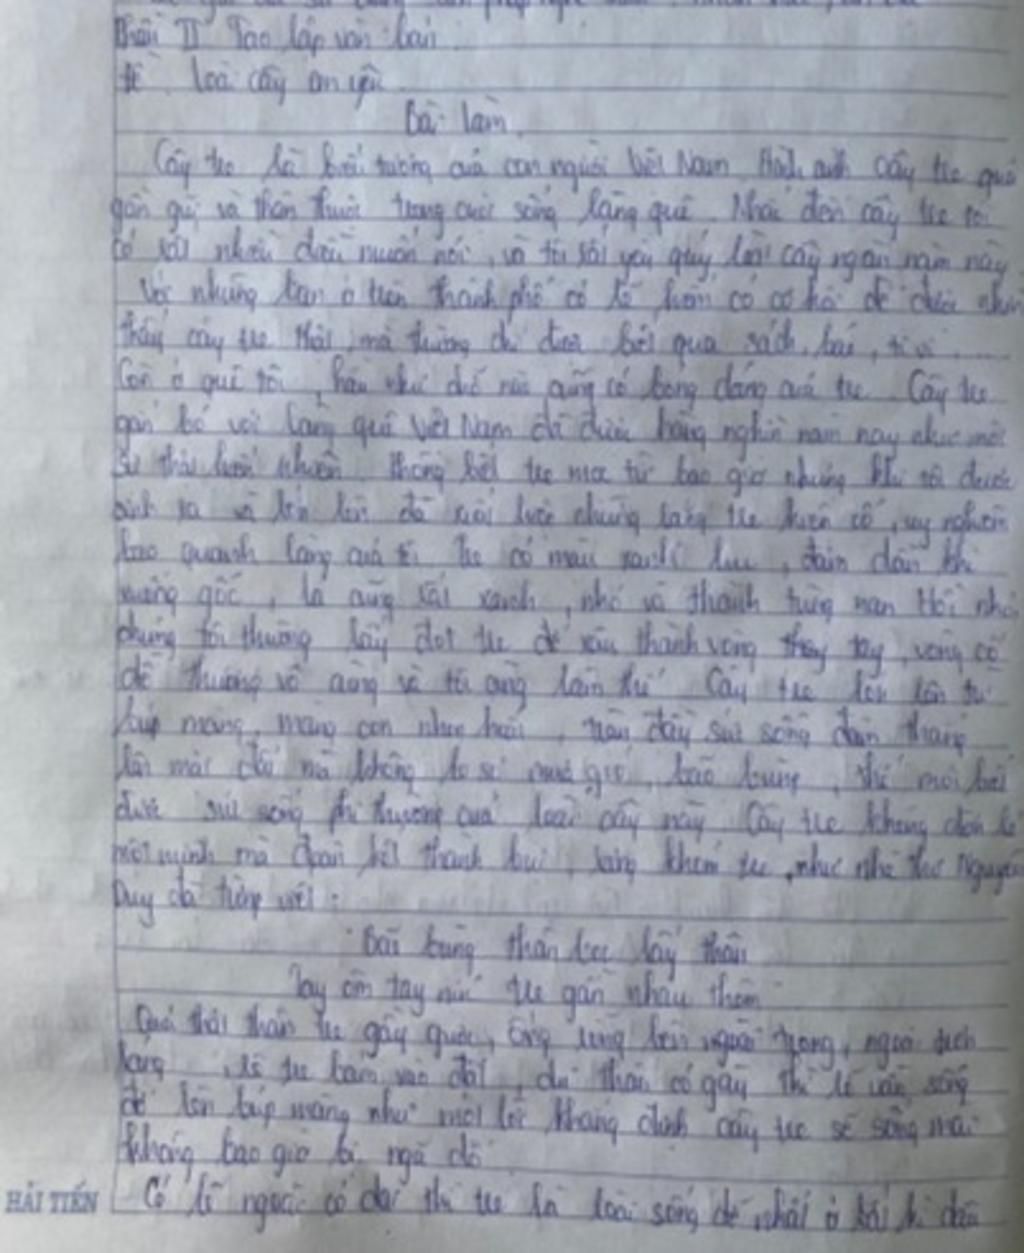 Phần II Tạo lập văn bản
Đề loài cây em yêu
Bài làm
Cây tre là biểu tượng của con người Việt Nam. Hình ảnh cây tre quá
gần gũi và thân thuộc trong cuộc sống làng quê. Nhắc đến cây tre tôi
có rất nhiều điều muốn nói, và tôi rất yêu quý loài cây ngàn năm này
Với những bạn ở trên thành phố có lẽ, hiếm có cơ hội để được nhìn
thấy cây tre thật, mà thường chỉ được biết qua sách, báo, ti vi....
Còn ở quê tôi, hầu như chỗ nào cũng có bóng dáng của tre. Cây tre
gắn bó với làng quê Việt Nam đã được hàng nghìn năm nay như một
lẽ tre mọc từ bao giờ nhưng khi tôi được
sinh ra và lớn lên đã thấy những hàng tre kiên cố, uy nghiêm
bao quanh làng của tôi. Tre có màu xanh lục, đậm dần khi
xuống gốc, lá cũng rất xanh, nhỏ và thành từng nan. Hồi nhỏ
chúng tôi thường lấy đọt tre để xâu thành vòng đeo tay, vòng cổ
dễ thương vô cùng và tôi cũng làm thế. Cây tre lớn lên từ
búp măng, măng con nhọn hoắt, tràn đầy sức sống đâm thẳng
lên mặt đất mà không lo sợ mưa gió, bão bùng, thế mới biết
được sức sống phi thường của loài cây này. Cây tre không đơn lẻ
một mình mà đoàn kết thành bụi, từng khóm tre, như nhà thơ Nguyễn
Duy đã từng viết:
Bão bùng thân bọc lấy thân
Tay ôm tay níu tre gần nhau thêm
Quả thật thân tre gầy guộc,
làng, rễ tre bám vào đất, dù thân có gãy thì rễ vẫn sống
để lên búp măng như một lời khẳng định cây tre sẽ sống mãi
không bao giờ bị ngã đổ
Có lẽ ngoài cỏ dại thì tre là loài sống dễ nhất ở bất kì đâu
HẢI TIẾN